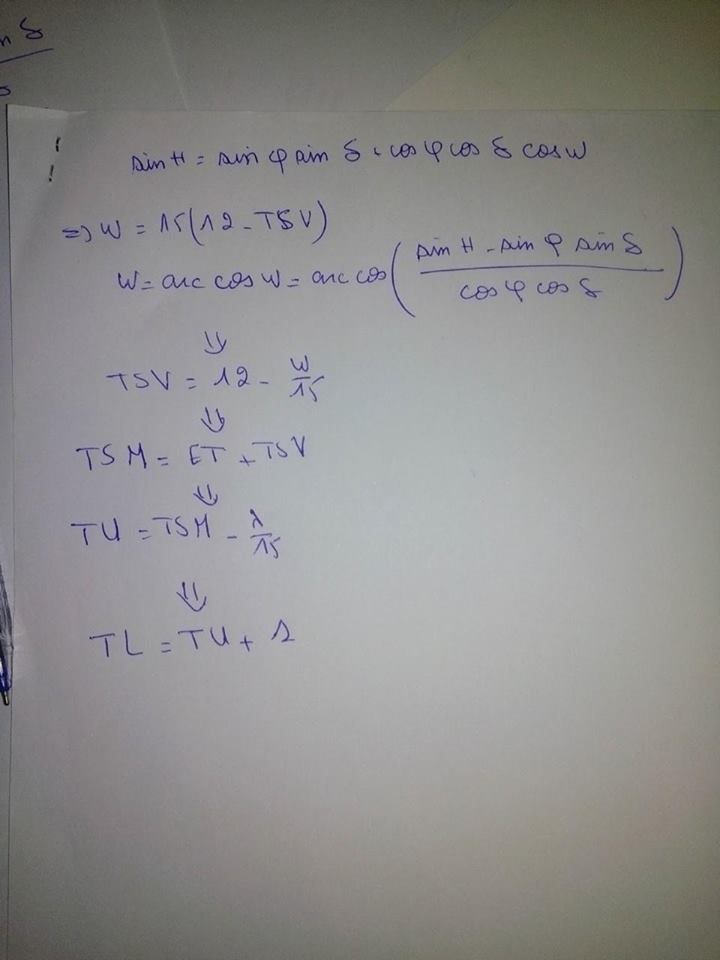 n δ
sin H = sin φ sin δ + cos φ cos δ cos w
=> W = 15(12 - TSV)
W = arc cos W = arc cos ( sin H - sin φ sin δ / cos φ cos δ )
⇓
TSV = 12 - W/15
⇓
TSM = ET + TSV
⇓
TU = TSM - λ/15
⇓
TL = TU + 1